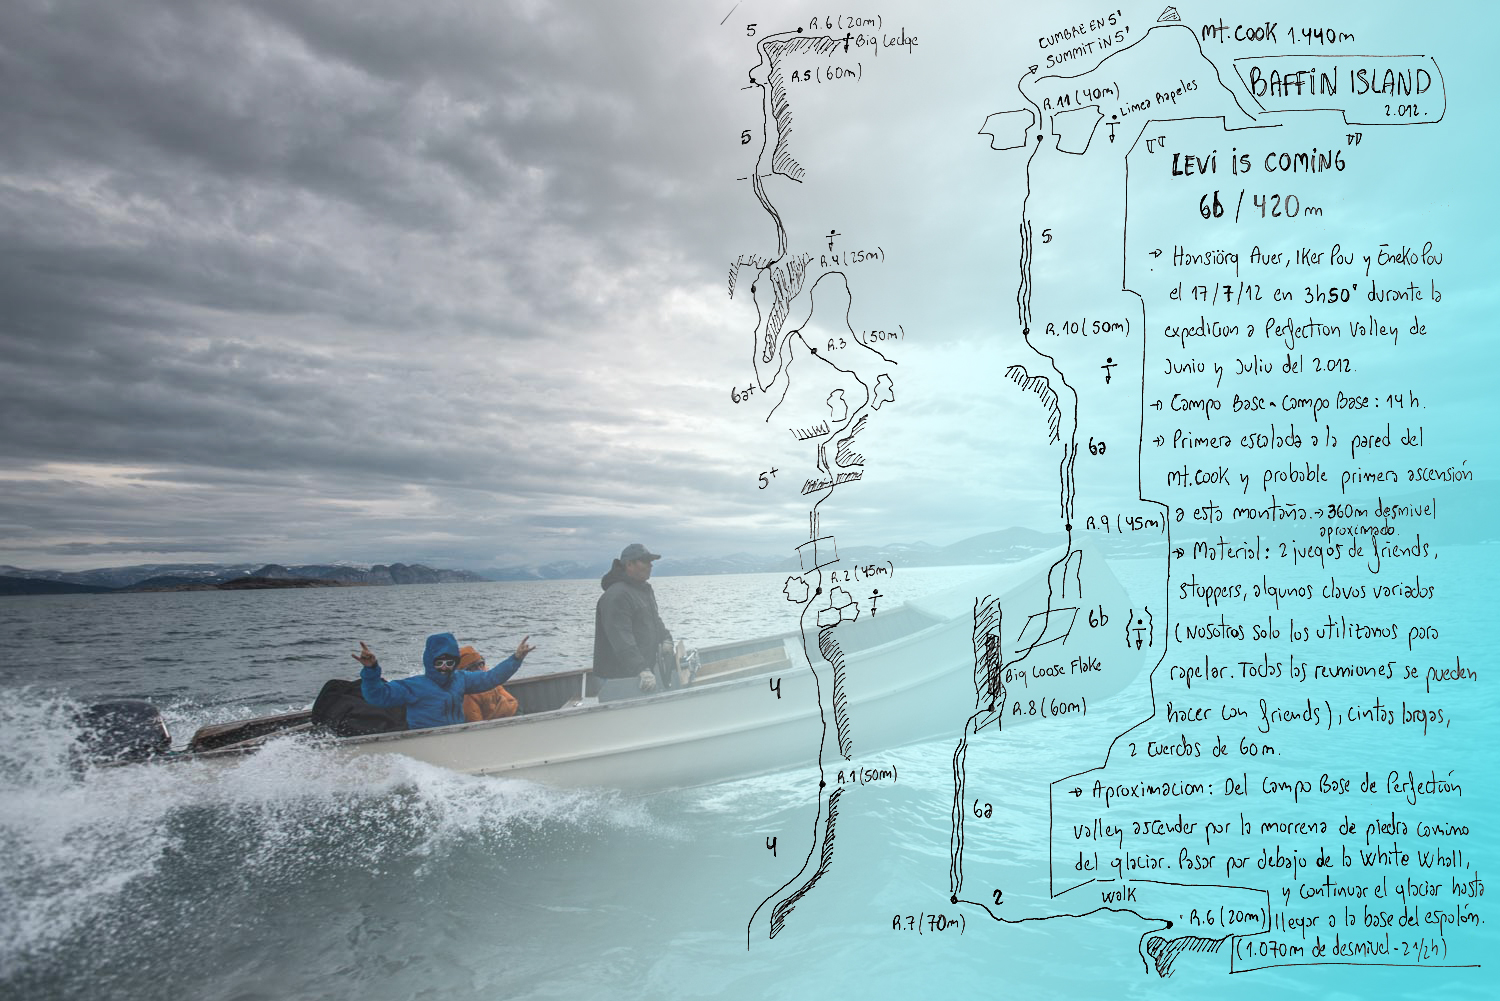 5
R.6 (20m)
Big Ledge
R.5 (60m)
5
R.4 (25m)
R.3 (50m)
6a+
5+
R.2 (45m)
4
R.1 (50m)
4
CUMBRE EN 5'
SUMMIT IN 5'
Mt. COOK 1.440m
R.11 (40m)
Linea Rapeles
5
R.10 (50m)
6a
R.9 (45m)
6b
Big Loose Flake
R.8 (60m)
6a
R.7 (70m)
2
walk
R.6 (20m)
BAFFIN ISLAND
2.012.
"LEVI IS COMING"
6b / 420m
→ Hansiörg Auer, Iker Pou y Eneko Pou
el 17/7/12 en 3h50' durante la
expedicion a Perfection Valley de
Junio y Juliu del 2.012.
→ Campo Base - Campo Base: 14 h.
→ Primera escalada a la pared del
Mt. Cook y probable primera ascensión
a esta montaña. → 360m desnivel
aproximado.
→ Material: 2 juegos de friends,
stoppers, algunos clavos variados
(Nosotros solo los utilizamos para
rapelar. Todas las reuniones se pueden
hacer con friends), cintas largas,
2 Cuerdas de 60m.
→ Aproximacion: Del Campo Base de Perfection
valley ascender por la morrena de piedra camino
del glaciar. Pasar por debajo de la White Whall,
y continuar el glaciar hasta
llegar a la base del espolón.
(1.070m de desnivel - 2 1/2h)